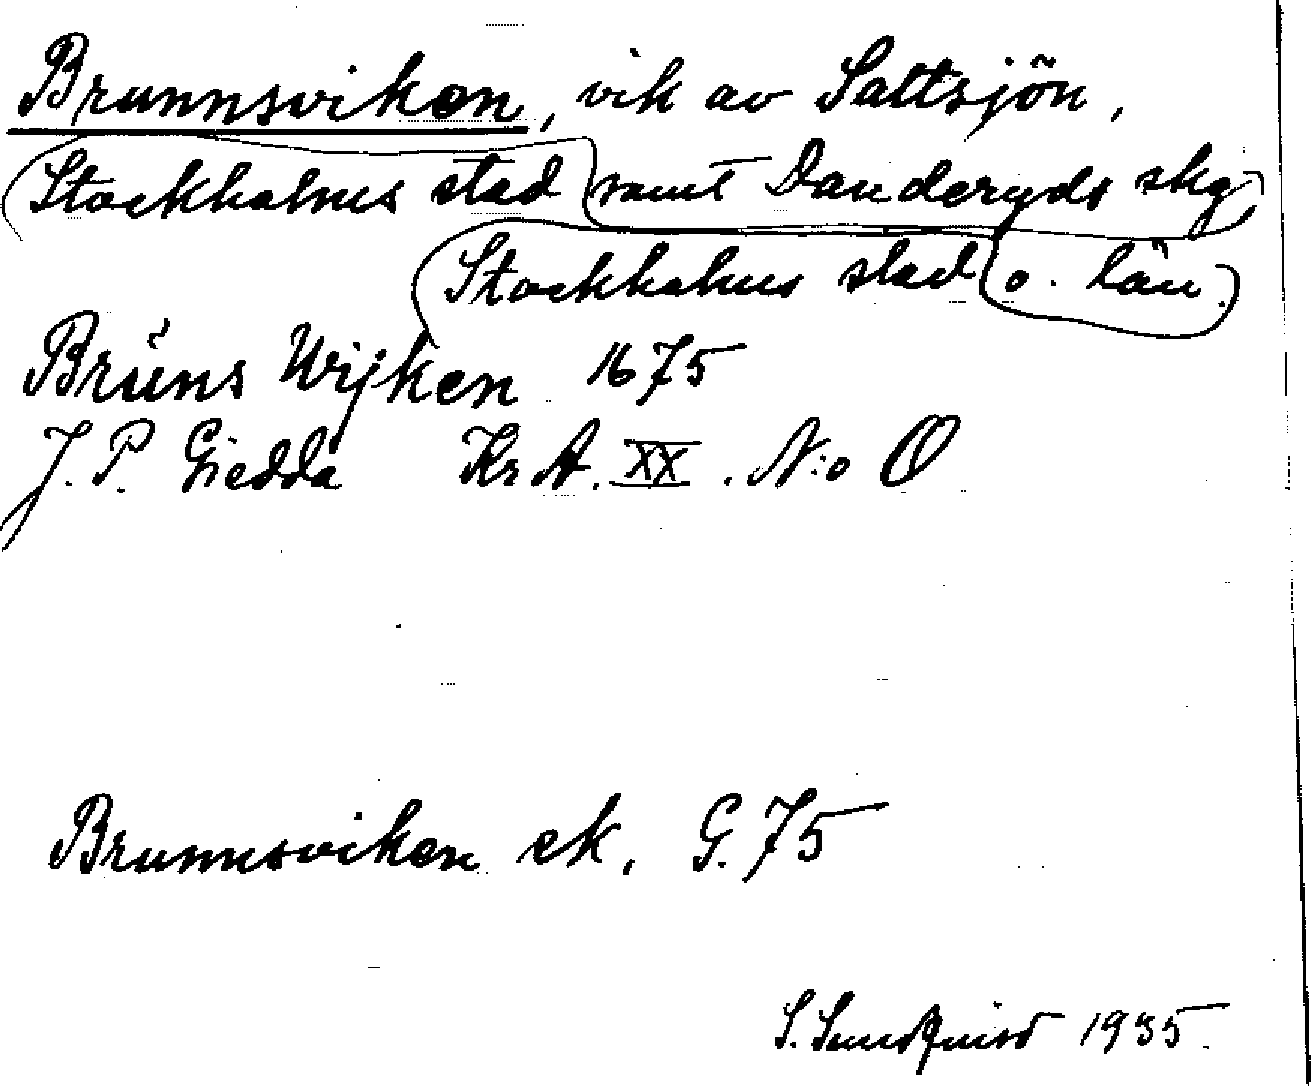 Brunnsviken, vik av Saltsjön,
Stockholms stad samt Danderyds skg,
Stockholms stad o. län.
Brŭns Wijken 1675
J. P. Giedda KrA. XX. N:o O
Brunnsviken ek. G. 75
S. Sundqvist 1935.